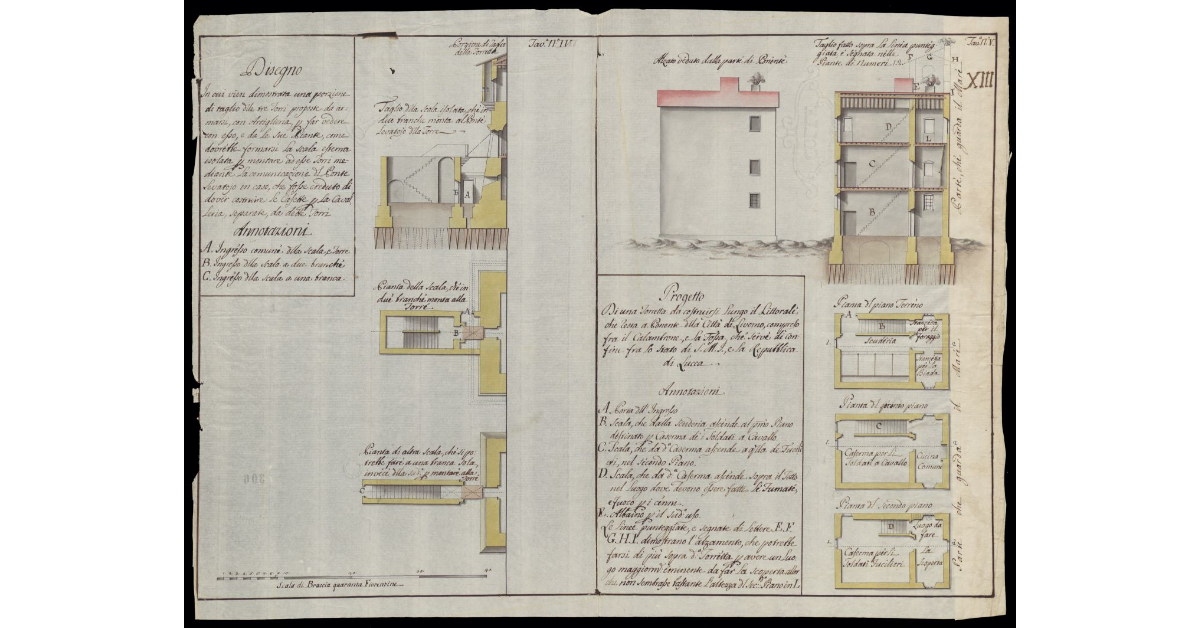 Tav.ª IV
Disegno
In cui vien dimostrata una porzione
di taglio delle tre Torri proposte da ar-
marsi, con Artiglieria, p far vedere
con esso, e da le sue Piante, come
dovrebbe formarsi la scala esterna
isolata p montare ad esse Torri me-
diante la comunicazione d'l Ponte
levatojo in caso, che fosse creduto di
dover costruire le Casette p la Caval
leria, separate, da dette Torri
Annotazioni
A. Ingresso comune della scala, e Torre
B. Ingresso d'lla scala a due branche
C. Ingresso d'lla scala a una branca
Porzione di Taglio
della Torretta
Taglio d'lla scala isolata, ch'è in
due branche monta al Ponte
levatojo d'lla Torre
B
A
Pianta della scala, ch'è in
due branche monta alla
Torre
A
B
Pianta di altra scala, che si po-
trebbe fare a una branca sola,
invece d'lla di p montare alla
Torre
C
Scala di Braccia quaranta Fiorentine
Tav.ª V
XIII
Alzato veduto dalla parte di Ponente
Taglio fatto sopra la linea punteg-
giata e segnata nelle
Piante di Numeri 1.2.
F
G
H
E
D
L
C
B
Parte, che guarda il Mare
Progetto
Di una Torretta da costruirsi lungo il Littorale,
che resta a Ponente della Città di Livorno, compreso
fra il Calambrone, e la Fossa, che serve di con
fine fra lo Stato di S.M.I., e la Repubblica
di Lucca
Annotazioni
A Porta dell'Ingresso
B. Scala, che dalla Scuderia ascende al primo Piano
destinato p Caserma de i Soldati a Cavallo
C. Scala, che da d.ª Caserma ascende a q'lla de Fucili
eri, nel secondo Piano.
D. Scala, che da d.ª Caserma ascende sopra il Tutto
nel luogo dove devono essere fatte le Fumate,
fuoco p i cenni
E. Abbaino p il sud.º uso
Le linee punteggiate, e segnate di lettere E.F
G.H.I. dimostrano l'alzamento, che potrebbe
farsi di più sopra d.ª Torretta p avere un luo
go maggiorm.e eminente da far la scoperta, allor
che non sembrasse bastante l'altezza d'l sec.º Piano in L
Pianta d'l piano Terreno
A
B
Stanzino
per il
foraggio
Scuderia
Stanzino
per la
Biada
Pianta d'l primo piano
C
Caserma per li
Soldati a Cavallo
Cucina
Comune
Pianta d'l secondo piano
D
Luogo da
fare
la
Scoperta
Caserma per li
Soldati Fucilieri
Parte che guarda il Mare